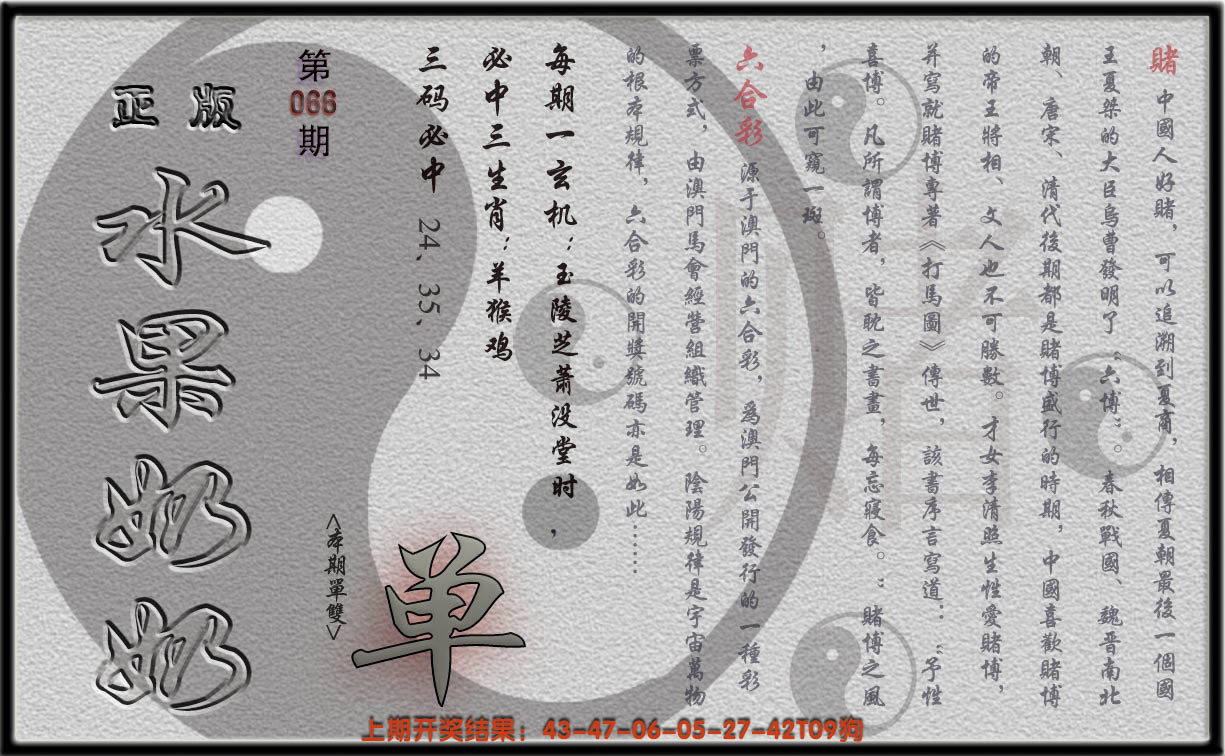 賭 中國人好賭，可以追溯到夏商，相傳夏朝最後一個國
王夏桀的大臣烏曹發明了“六博”。春秋戰國、魏晋南北
朝、唐宋、清代後期都是賭博盛行的時期，中國喜歡賭博
的帝王將相、文人也不可勝數。才女李清照生性愛賭博，
并寫就賭博專著《打馬圖》傳世，該書序言寫道：“予性
喜博。凡所謂博者，皆耽之書畫，每忘寢食。”賭博之風
，由此可窺一斑。
六合彩 源于澳門的六合彩，為澳門公開發行的一種彩
票方式，由澳門馬會經營組織管理。陰陽規律是宇宙萬物
的根本規律，六合彩的開獎號碼亦是如此……
每期一玄机：玉陵芝蕭没堂时，
必中三生肖：羊猴鸡
三码必中 24、35、34
第066期
正版
水果奶奶
<本期單雙>
单
上期开奖结果：43-47-06-05-27-42T09狗